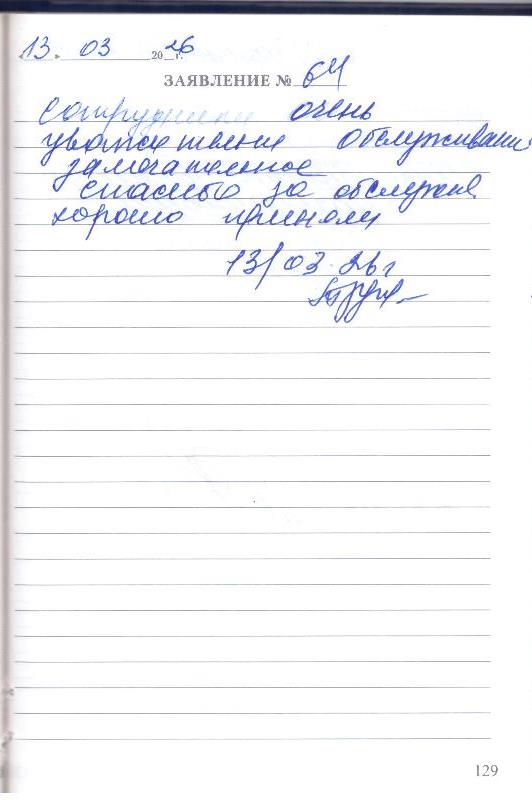 13. 03 2026 г.
ЗАЯВЛЕНИЕ № 64
Сотрудники очень
уважительные обслуживание
замечательное
спасибо за обслужив.
хорошо приняли
13/03.26г
129